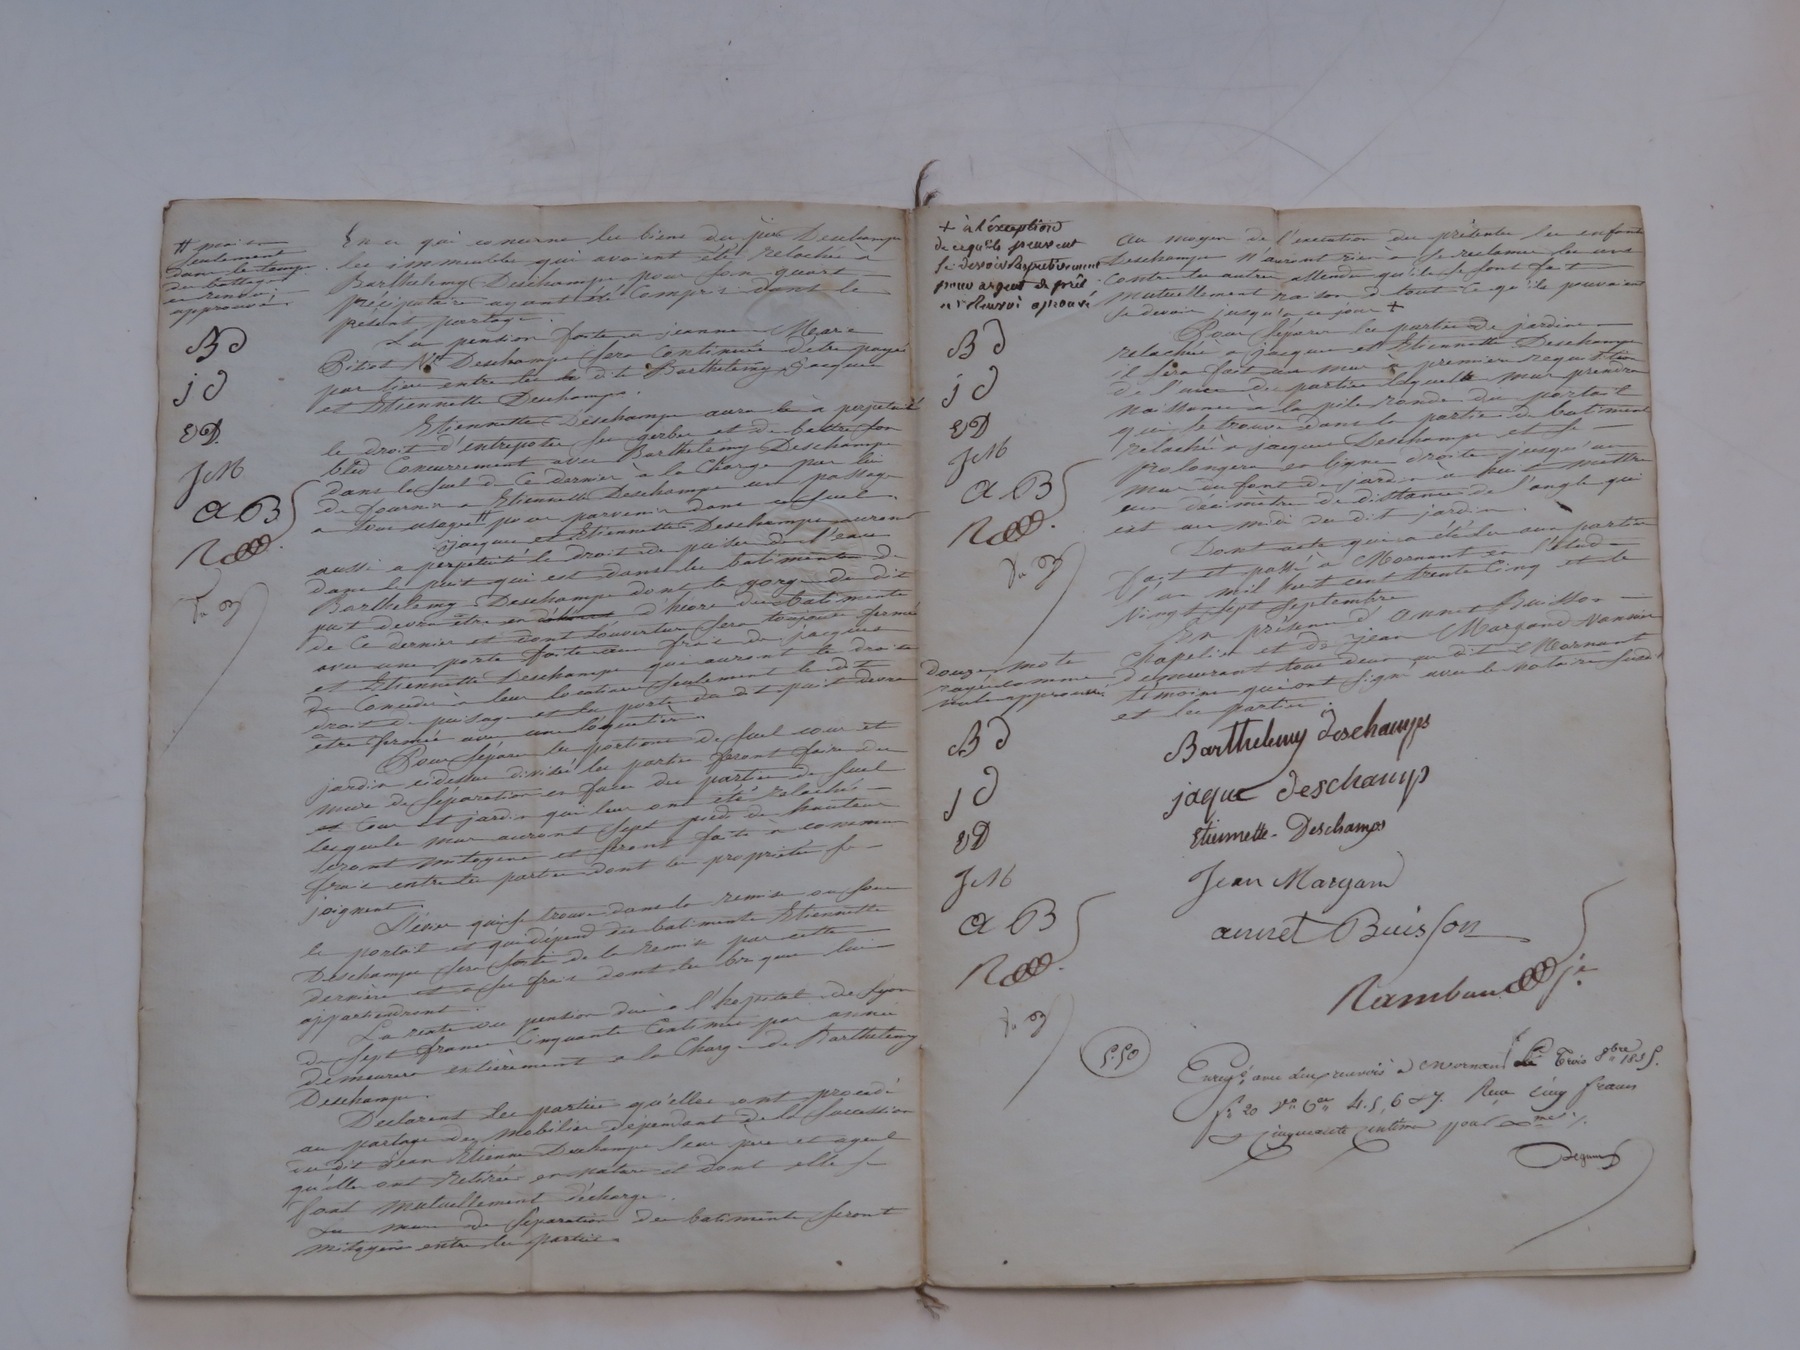 # mais
seulement
dans le temps
du battage
en renvoi
approuvé
B d
j d
E D
J M
A B
En ce qui concerne les biens du père Deschamps
les immeubles qui avaient été relachés à
Barthelemy Deschamps pour son quart
préciputaire ayant été compris dans le
présent partage.
La pension faite a jeanne Marie
Pitiot Vve Deschamps sera continuée d'être payée
par tiers entre les dits Barthelemy, Jacques
et Etiennette Deschamps.
Etiennette Deschamps aura à perpétuité
le droit d'entreposer ses gerbes et de battre son
bled Concurremment avec Barthelemy Deschamps
dans le suel de ce dernier à la Charge par lui
de fournir a Etiennette Deschamps un passage
a tous usages # pour parvenir dans ce suel.
Jacques et Etiennette Deschamps auront
aussi a perpétuité le droit de puiser de l'eau
dans le puit qui est dans les batiments de
Barthelemy Deschamps dont la gorge du dit
puit devra être en dehors des batiments
de ce dernier et dont l'ouverture sera toujours fermée
avec une porte faite aux frais de jacques
et Etiennette Deschamps qui auront le droit
de concéder à leurs locataires seulement le dit
droit de puisage et la porte du dit puit devra
être fermée avec un loqueteau.
Pour séparer les portions de suel cour et
jardin cidessus divisés les parties feront faire des
murs de séparation en face des parties de suel
et Cour et jardin qui leur ont été relachés
lesquels murs auront sept pieds de hauteur
seront mitoyens et seront faits à communs
frais entre les parties dont les propriétés se
joignent.
L'évier qui se trouve dans la remise ou sous
le portail et qui dépend des batiments Etiennette
Deschamps sera sorti de la remise par cette
dernière et a ses frais dont les briques lui
appartiendront.
La rente ou pension due a l'hopital de Lyon
de sept francs Cinquante Centimes par année
demeurera entièrement a la Charge de Barthelemy
Deschamps.
Declarent les parties qu'elles ont procédé
au partage du mobilier dépendant de la succession
du dit Jean Etienne Deschamps leur père et ayeul
qu'elles ont retirée en nature et dont elles se
font mutuellement décharge.
Les murs de séparation des batiments seront
mitoyens entre les parties.
+ à l'éxception
de ce qu'ils peuvent
se devoir respectivement
pour argent de prêt
renvoi aprouvé
B d
j d
E D
J M
A B
Douze mots
rayés comme
nuls approuvés
B d
j d
E D
J M
A B
Au moyen de l'execution des présentes les enfants
Deschamps n'auront rien a se reclamer les uns
contre les autres attendu qu'ils se sont fait
mutuellement raison de tout ce qu'ils pouvaient
se devoir jusqu'a ce jour +
Pour séparer les parties de jardin
relachées a jacques et Etiennette Deschamps
il sera fait un mur à première requisition
de l'une des parties lequel mur prendra
naissance à la pile ronde du portail
qui se trouve dans la partie de batiment
relachée a jacques Deschamps et se
prolongera en ligne droite jusqu'au
mur du font du jardin à huit mettres
un décimètre de distance de l'angle qui
est au midi du dit jardin.
Dont acte qui a été lu aux parties
fait et passé à Mornant en l'étude
l'an mil huit cent trente cinq et le
vingt sept septembre
En présence d'annet Buisson
chapelier et de jean Margand
demeurant tous deux au dit Mornant
témoins qui ont signé avec le notaire susdit
et les parties.
Barthelemy deschamps
jaque deschamps
Etiennette Deschamps
Jean Margand
annet Buisson
Rambaud
5.50
Enregé avec deux renvois à Mornant le Trois 8bre 1835.
fo 20 Vo Ces 4.5, 6 & 7. Reçu Cinq francs
& cinquante centimes pour Xmes.